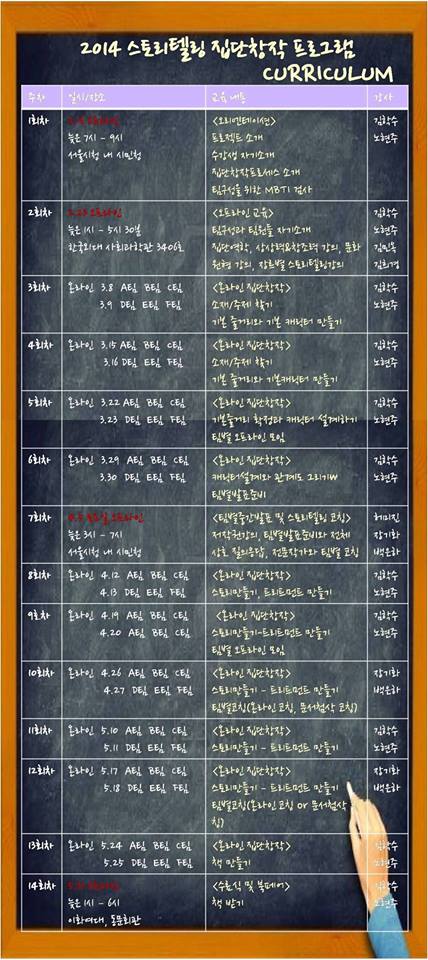 2014 스토리텔링 집단창작 프로그램
CURRICULUM
주차 일시/장소 교육 내용 강사
1회차 <오리엔테이션> 김학수
늦은 7시 - 9시 프로젝트 소개 노현주
서울시청 내 시민청 수강생 자기소개
집단창작프로세스 소개
팀구성을 위한 MBTI 검사
2회차 2.23 오프라인 <오프라인 교육> 김학수
늦은 1시 - 5시 30분 팀구성과 팀원들 자기소개 노현주
한국외대 사회과학관 3406호 집단역학, 상상력&창조력 강의, 문화
원형 강의, 장르별 스토리텔링강의 김희경
3회차 온라인 3.8 A팀 B팀 C팀 <온라인 집단창작> 김학수
3.9 D팀 E팀 F팀 소재/주제 찾기 노현주
기본 줄거리와 기본 캐릭터 만들기
4회차 온라인 3.15 A팀 B팀 C팀 <온라인 집단창작> 김학수
3.16 D팀 E팀 F팀 소재/주제 찾기 노현주
기본 줄거리와 기본캐릭터 만들기
5회차 온라인 3.22 A팀 B팀 C팀 <온라인 집단창작> 김학수
3.23 D팀 E팀 F팀 기본줄거리 확정과 캐릭터 설계하기 노현주
팀별 오프라인 모임
6회차 온라인 3.29 A팀 B팀 C팀 <온라인 집단창작> 김학수
3.30 D팀 E팀 F팀 캐릭터설계와 관계도 그리기w 노현주
팀별발표준비
7회차 <팀별중간발표 및 스토리텔링 코칭> 허미진
늦은 3시 - 7시 저작권강의, 팀별발표준비와 전체 장기화
서울시청 내 시민청 상호 질의응답, 전문작가와 팀별 코칭 백은하
8회차 온라인 4.12 A팀 B팀 C팀 <온라인 집단창작> 김학수
4.13 D팀 E팀 F팀 스토리만들기, 트리트먼트 만들기 노현주
9회차 온라인 4.19 A팀 B팀 C팀 <온라인 집단창작> 김학수
4.20 A팀 B팀 C팀 스토리만들기-트리트먼트 만들기 노현주
팀별 오프라인 모임
10회차 온라인 4.26 A팀 B팀 C팀 <온라인 집단창작> 장기화
4.27 D팀 E팀 F팀 스토리만들기 - 트리트먼트 만들기 백은하
팀별코칭(온라인 코칭, 문서첨삭 코칭)
11회차 온라인 5.10 A팀 B팀 C팀 <온라인 집단창작> 김학수
5.11 D팀 E팀 F팀 스토리만들기 - 트리트먼트 만들기 노현주
12회차 온라인 5.17 A팀 B팀 C팀 <온라인 집단창작> 장기화
5.18 D팀 E팀 F팀 스토리만들기 - 트리트먼트 만들기 백은하
팀별코칭(온라인 코칭 or 문서첨삭 코
칭)
13회차 온라인 5.24 A팀 B팀 C팀 <온라인 집단창작> 김학수
5.25 D팀 E팀 F팀 책 만들기 노현주
14회차 <수료식 및 북페어> 김학수
늦은 1시 - 6시 책 받기 노현주
이화여대, 동문회관